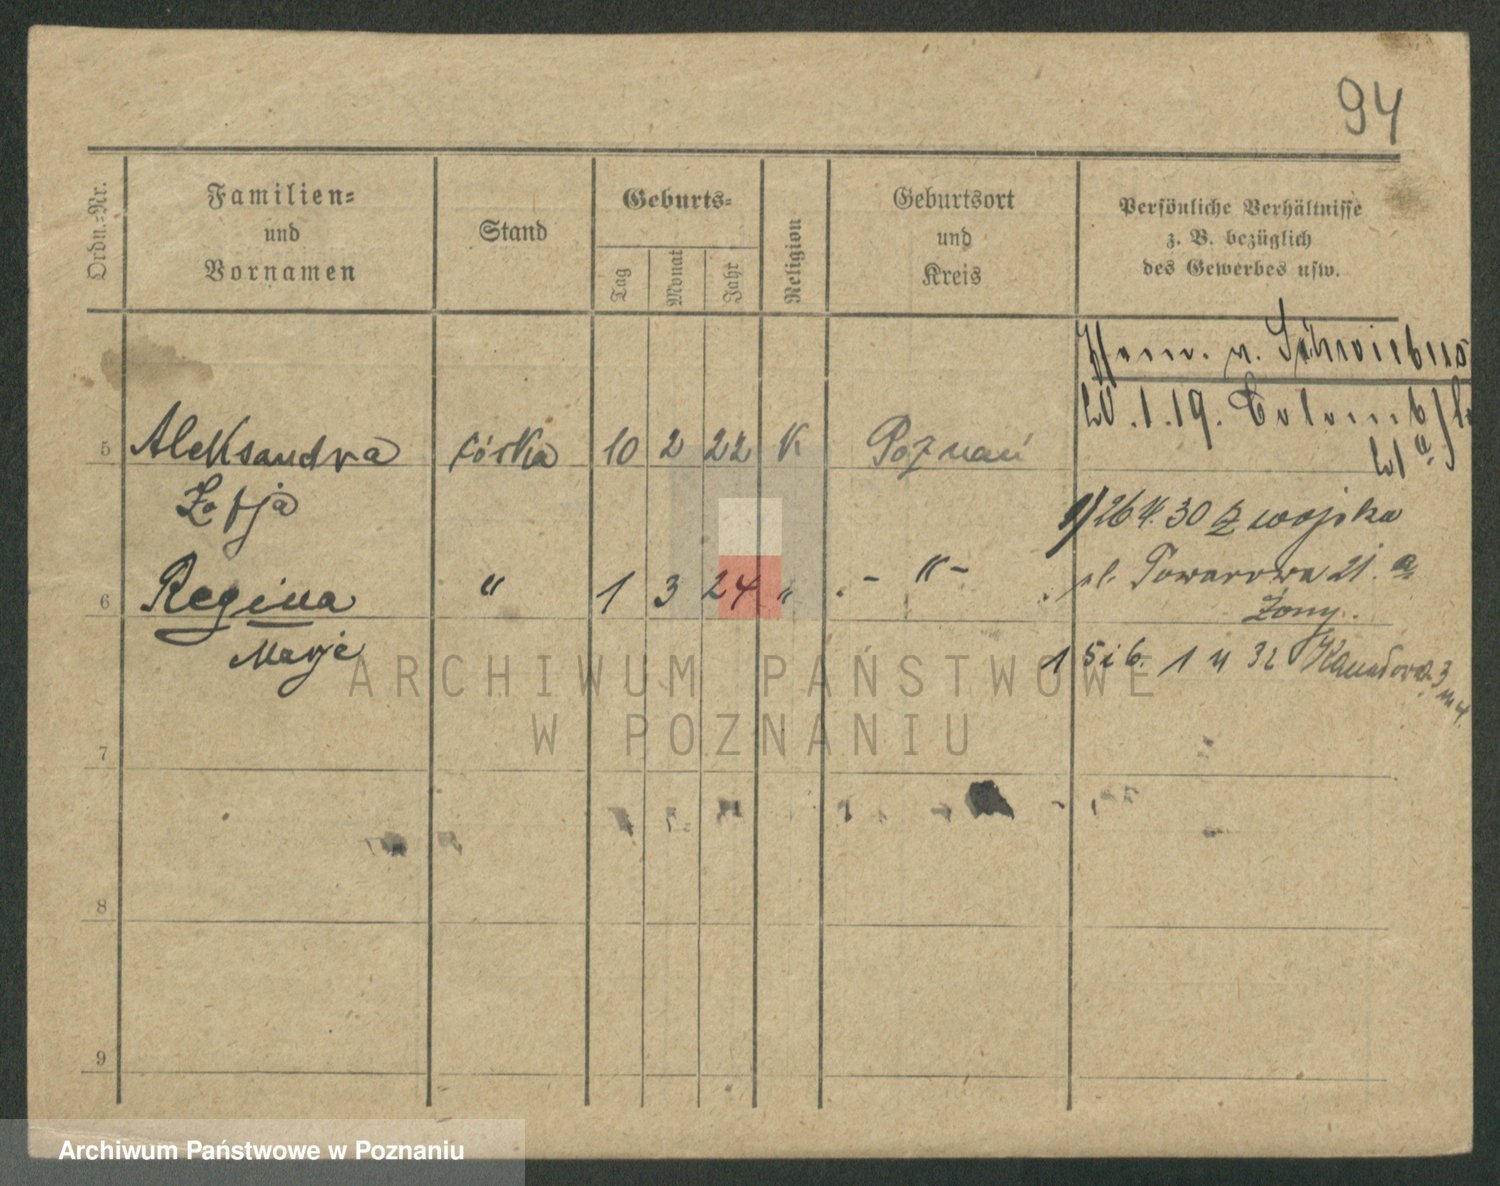 94
Ordn.-Nr.
Familien-
und
Vornamen
Stand
Geburts-
Tag
Monat
Jahr
Religion
Geburtsort
und
Kreis
Persönliche Verhältnisse
z. B. bezüglich
des Gewerbes usw.
5 Aleksandra córka 10 2 22 K Poznań
Zofja
26 30 z wojska
Towarowa 21. a
żony.
6 Regina " 1 3 24 " - " -
Marje
1 5 i 6. 1 4 32
7
8
9
ARCHIWUM PAŃSTWOWE
W POZNANIU
Archiwum Państwowe w Poznaniu